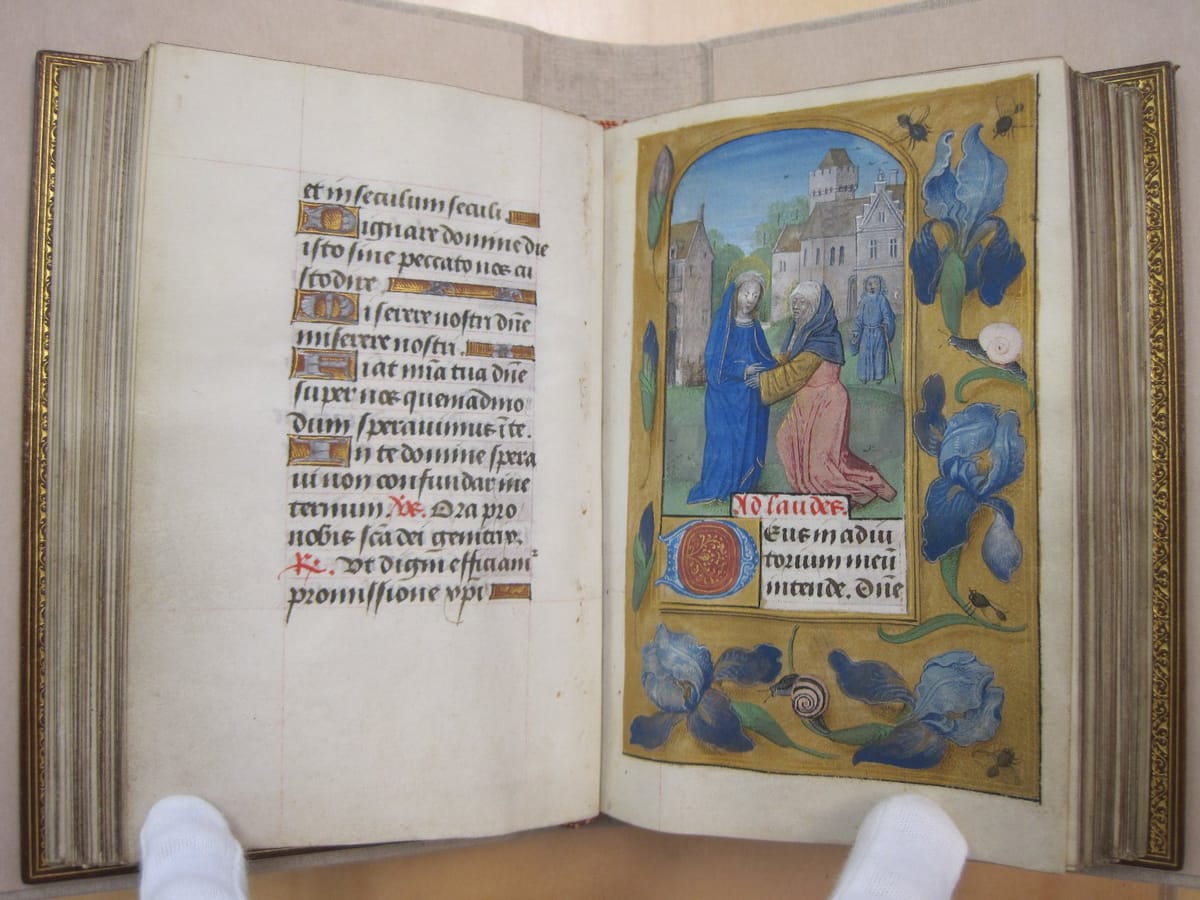 et in seculum seculi.
Dignare domine die
isto sine peccato nos cu
stodire
Miserere nostri dñe
miserere nostri.
Fiat mĩa tua dñe
super nos quemadmo
dum speravimus ĩ te.
In te domine spera
vi non confundar ine
ternum. Vs. Ora pro
nobis scã dei genitrix.
R. Vt digni efficiam²
promissione xpi
Ad laudes.
Deus in adiu
torium meũ
intende. Dñe